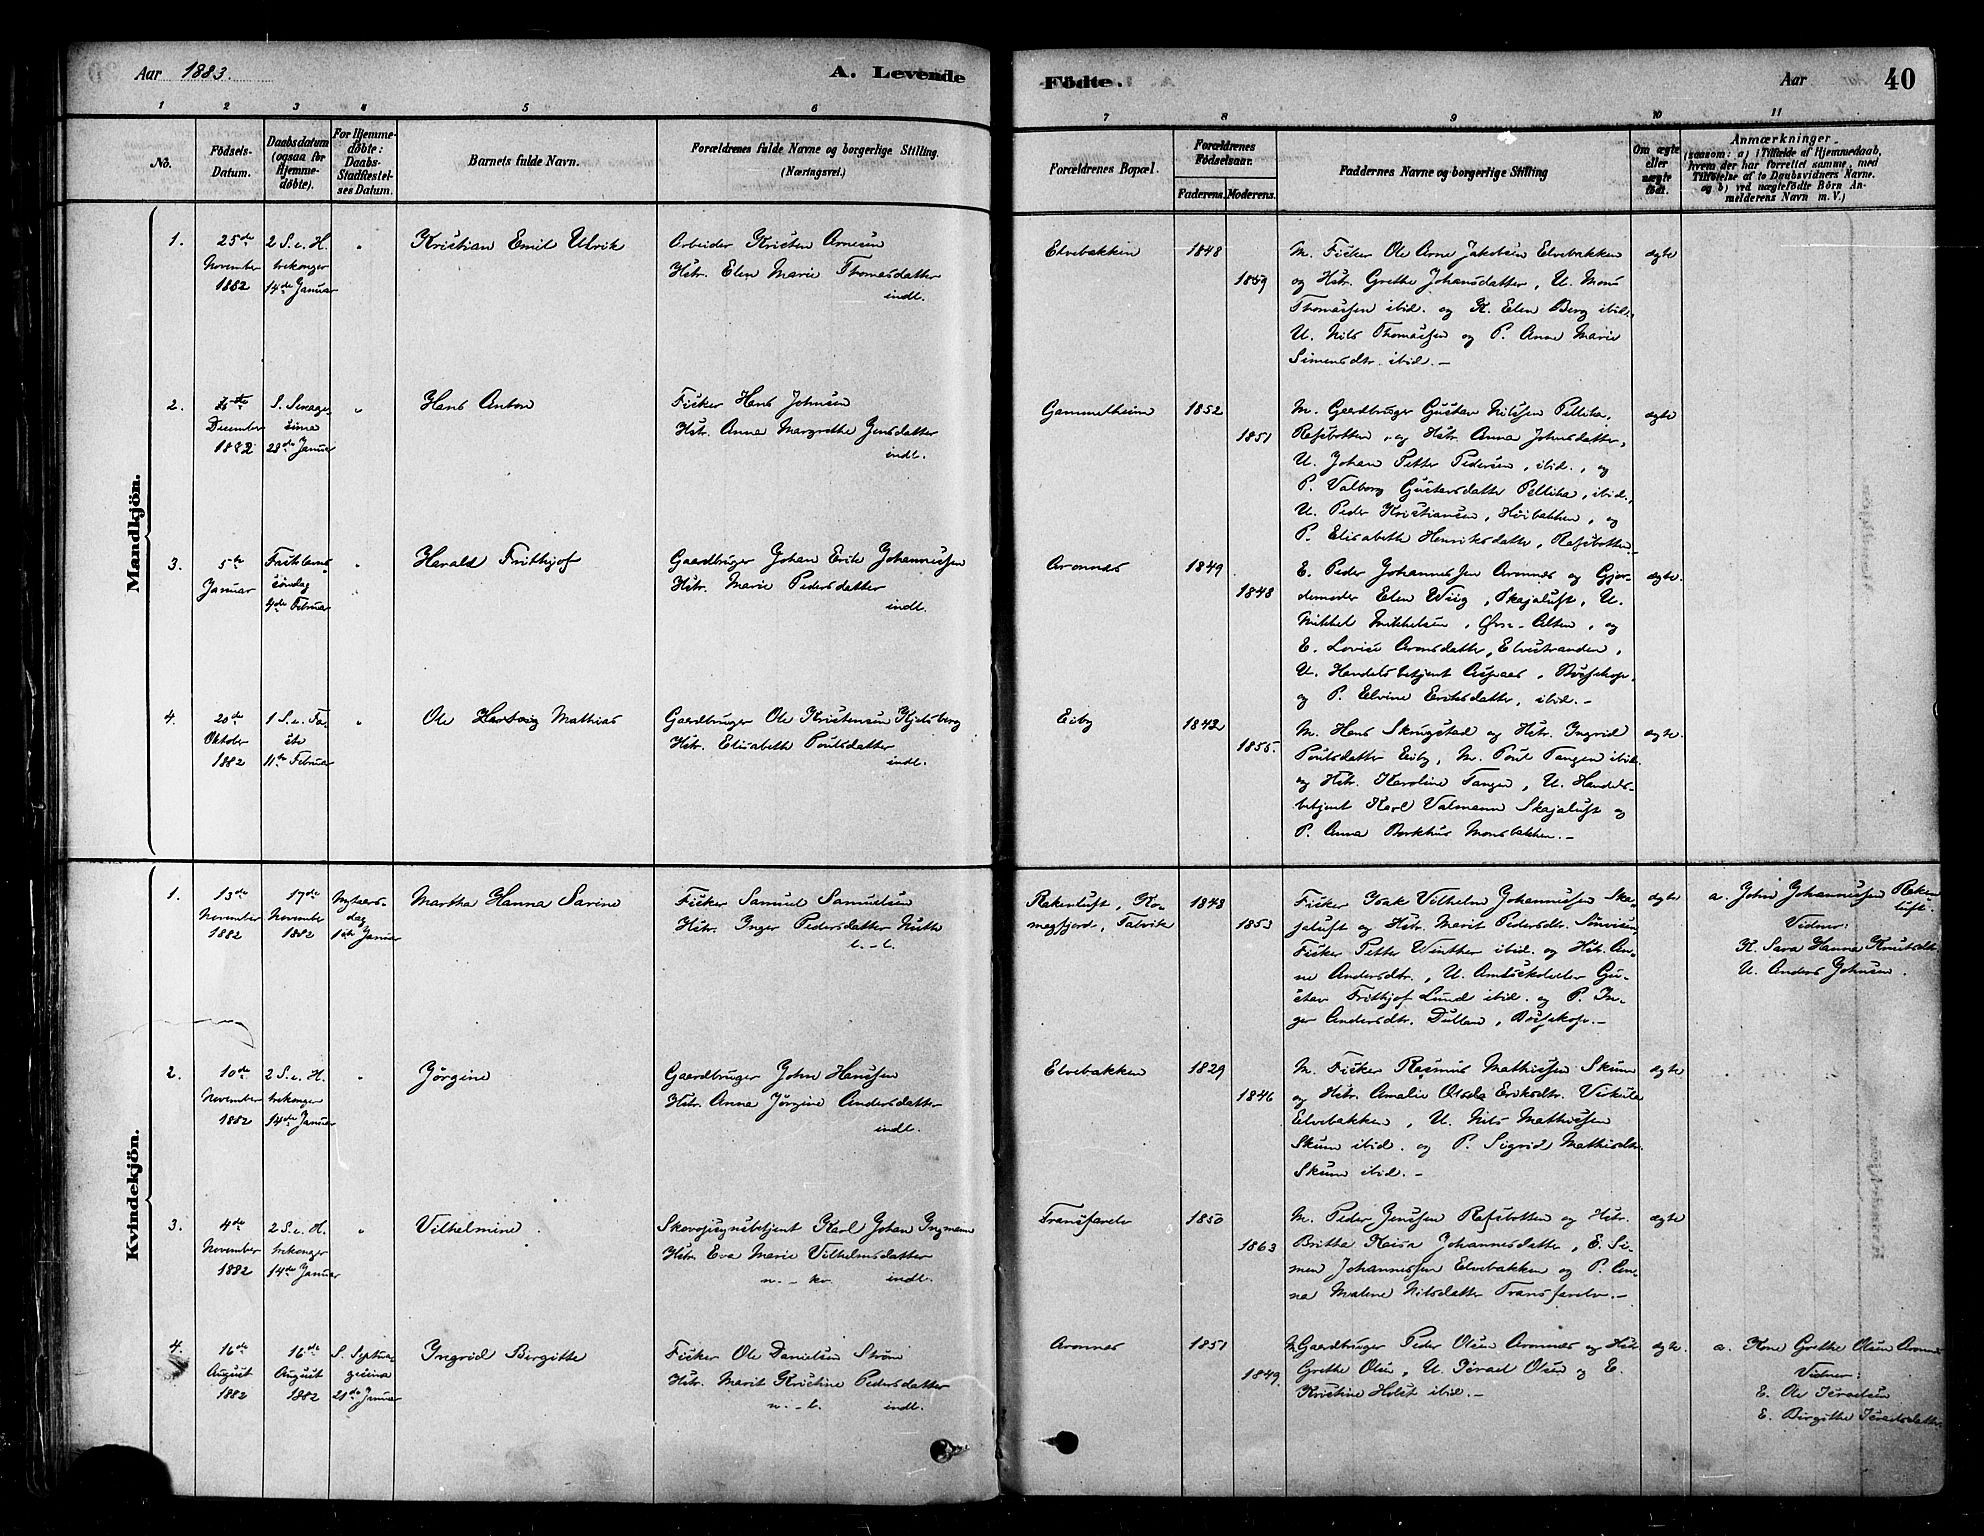 Aar 1883.
A. Levende
Födte.
Aar
40
1 2 3 4 5 6 7 8 9 10 11
No.
Födsels-Datum.
Daabsdatum (ogsaa for Hjemme-döbte).
For Hjemme-döbte: Daabs-Stadfæstel-ses Datum.
Barnets fulde Navn.
Forældrenes fulde Navne og borgerlige Stilling. (Næringsvei.)
Forældrenes Bopæl.
Forældrenes Födselsaar.
Faderens. Moderens.
Faddernes Navne og borgerlige Stilling
Om ægte eller uægte födt.
Anmærkninger
(saasom: a) i Tilfælde af Hjemmedaab,
hvem der har forrettet samme, med
Tilföielse af to Daabsvidners Navne.
og b) ved uægtefödte Börn An-
melderens Navn m. V.)
Mandkjön.
1.
25de November 1882
2 S. e. H. trekonger 14de Januar
"
Kristian Emil Ulrik
Arbeider Kristen Arnesen
Hstr. Elen Marie Thomasdatter
indl.
Elvebakken
1848
1849
M. Fisker Ole Arne Jakobsen Elvebakken
og Hstr. Grethe Johansdatter, U. Mons
Thomassen ibid. og K. Elen Berg ibid.
U. Nils Thomassen og P. Anne Marie
Simensdtr. ibid. -
ægte
2.
December 1882
S. Sexage-sima 28de Januar
"
Hans Anton
Fisker Hans Johnsen
Hstr. Anna Margrethe Jensdatter
indl.
Gammelheim
1852
1851
M. Gaardbruger Gustav Nilsen Pellika,
Rafsbotten, og Hstr. Anna Johnsdatter,
U. Johan Petter Pedersen, ibid., og
P. Valborg Gustavsdatter Pellika, ibid.,
U. Peder Kristiansen, Höibakken, og
P. Elisabeth Henriksdatter, Rafsbotten.
ægte
3.
5te Januar
Fastelavns-söndag 4de Februar
"
Harald Frithjof
Gaardbruger Johan Erik Johannessen
Hstr. Marie Pedersdatter
indl.
Aronnæs
1849
1848
E. Peder Johannessen Aronnæs og Gjor-
demoder Elen Wiig, Skajaluft, U.
Mikkel Mikkelsen, Övre-Alten, og
E. Lovise Aronsdatter, Elvestranden,
U. Handelsbetjent Aspaas, Bossekop,
og P. Elvine Eriksdatter, ibid. -
ægte.
4.
20de Oktober 1882
1 S. e. Fa-ste 11te Februar
"
Ole Hartvig Mathias
Gaardbruger Ole Kristensen Kjelsberg
Hstr. Elisabeth Poulsdatter
indl.
Eiby
1842
1855.
M. Hans Skrugstad og Hstr. Ingrid
Poulsdatter Eiby, M. Poul Tangen ibid.
og Hstr. Karoline Tangen, U. Handels-
betjent Karl Valmann Skajaluft og
P. Anna Borkhus Monsbakken. -
ægte.
Kvindekjön.
1.
13de November 1882
17de November 1882
Nytaars-dag 1ste Januar
Martha Hanna Sarine
Fisker Samuel Samuelsen
Hstr. Inger Pedersdatter Nutte
l. - l.
Rakenluft, Ko-
megfjord, Talvik
1848
1853
Fisker Isak Vilhelm Johannessen Ska-
jaluft og Hstr. Marit Pedersdtr.
Fisker Petter Winther ibid. og Hstr. An-
ne Andersdtr., U. Amtsskolelærer Gu-
stav Frithjof Lund ibid. og P. In-
ger Andersdtr. Bossekop. -
ægte
a. John Johannessen Raken-
luft.
Vidner:
K. Sara Hanna Knutsdtr.
U. Anders Johnsen.
2.
10de November 1882
2 S. e. H. trekonger 14de Januar
"
Jörgine
Gaardbruger John Hansen
Hstr. Anna Jörgine Andersdatter
indl.
Elvebakken
1829
1846
M. Fisker Rasmus Mathissen Skum
og Hstr. Amalie Olsdt Eriksdtr.
Elvebakken, U. Nils Mathissen
Skum ibid. og P. Sigrid Mathisdtr.
Skum ibid. -
ægte
3.
4de November 1882
2 S. e. H. trekonger 14de Januar
"
Vilhelmine.
Skovopsynsbetjent Karl Johan Ingmann
Hstr. Eva Marie Vilhelmsdatter
n. - kv. indl.
Transfarelv
1850
1863
M. Peder Jenssen Rafsbotten og Hstr.
Britha Kaisa Johannesdatter, E. Si-
men Johannessen Elvebakken og P. An-
na Malene Nilsdatter Transfarelv. -
ægte
4.
16de August 1882
16de August 1882
S. Septua-gesima 21de Januar
Ingrid Bergitte
Fisker Ole Danielsen Ström
Hstr. Marit Kristine Pedersdatter
n. - l. indl.
Aronnes
1851
1849.
M. Gaardbruger Peder Olsen Aronnæs og Hstr.
Grethe Olsen, U. Israel Olsen og E.
Kristine Holst ibid. -
ægte.
a. Kone Grethe Olsen Aronnes
Vidner:
E. Ole Israelsen
E. Birgithe Israelsdatter.